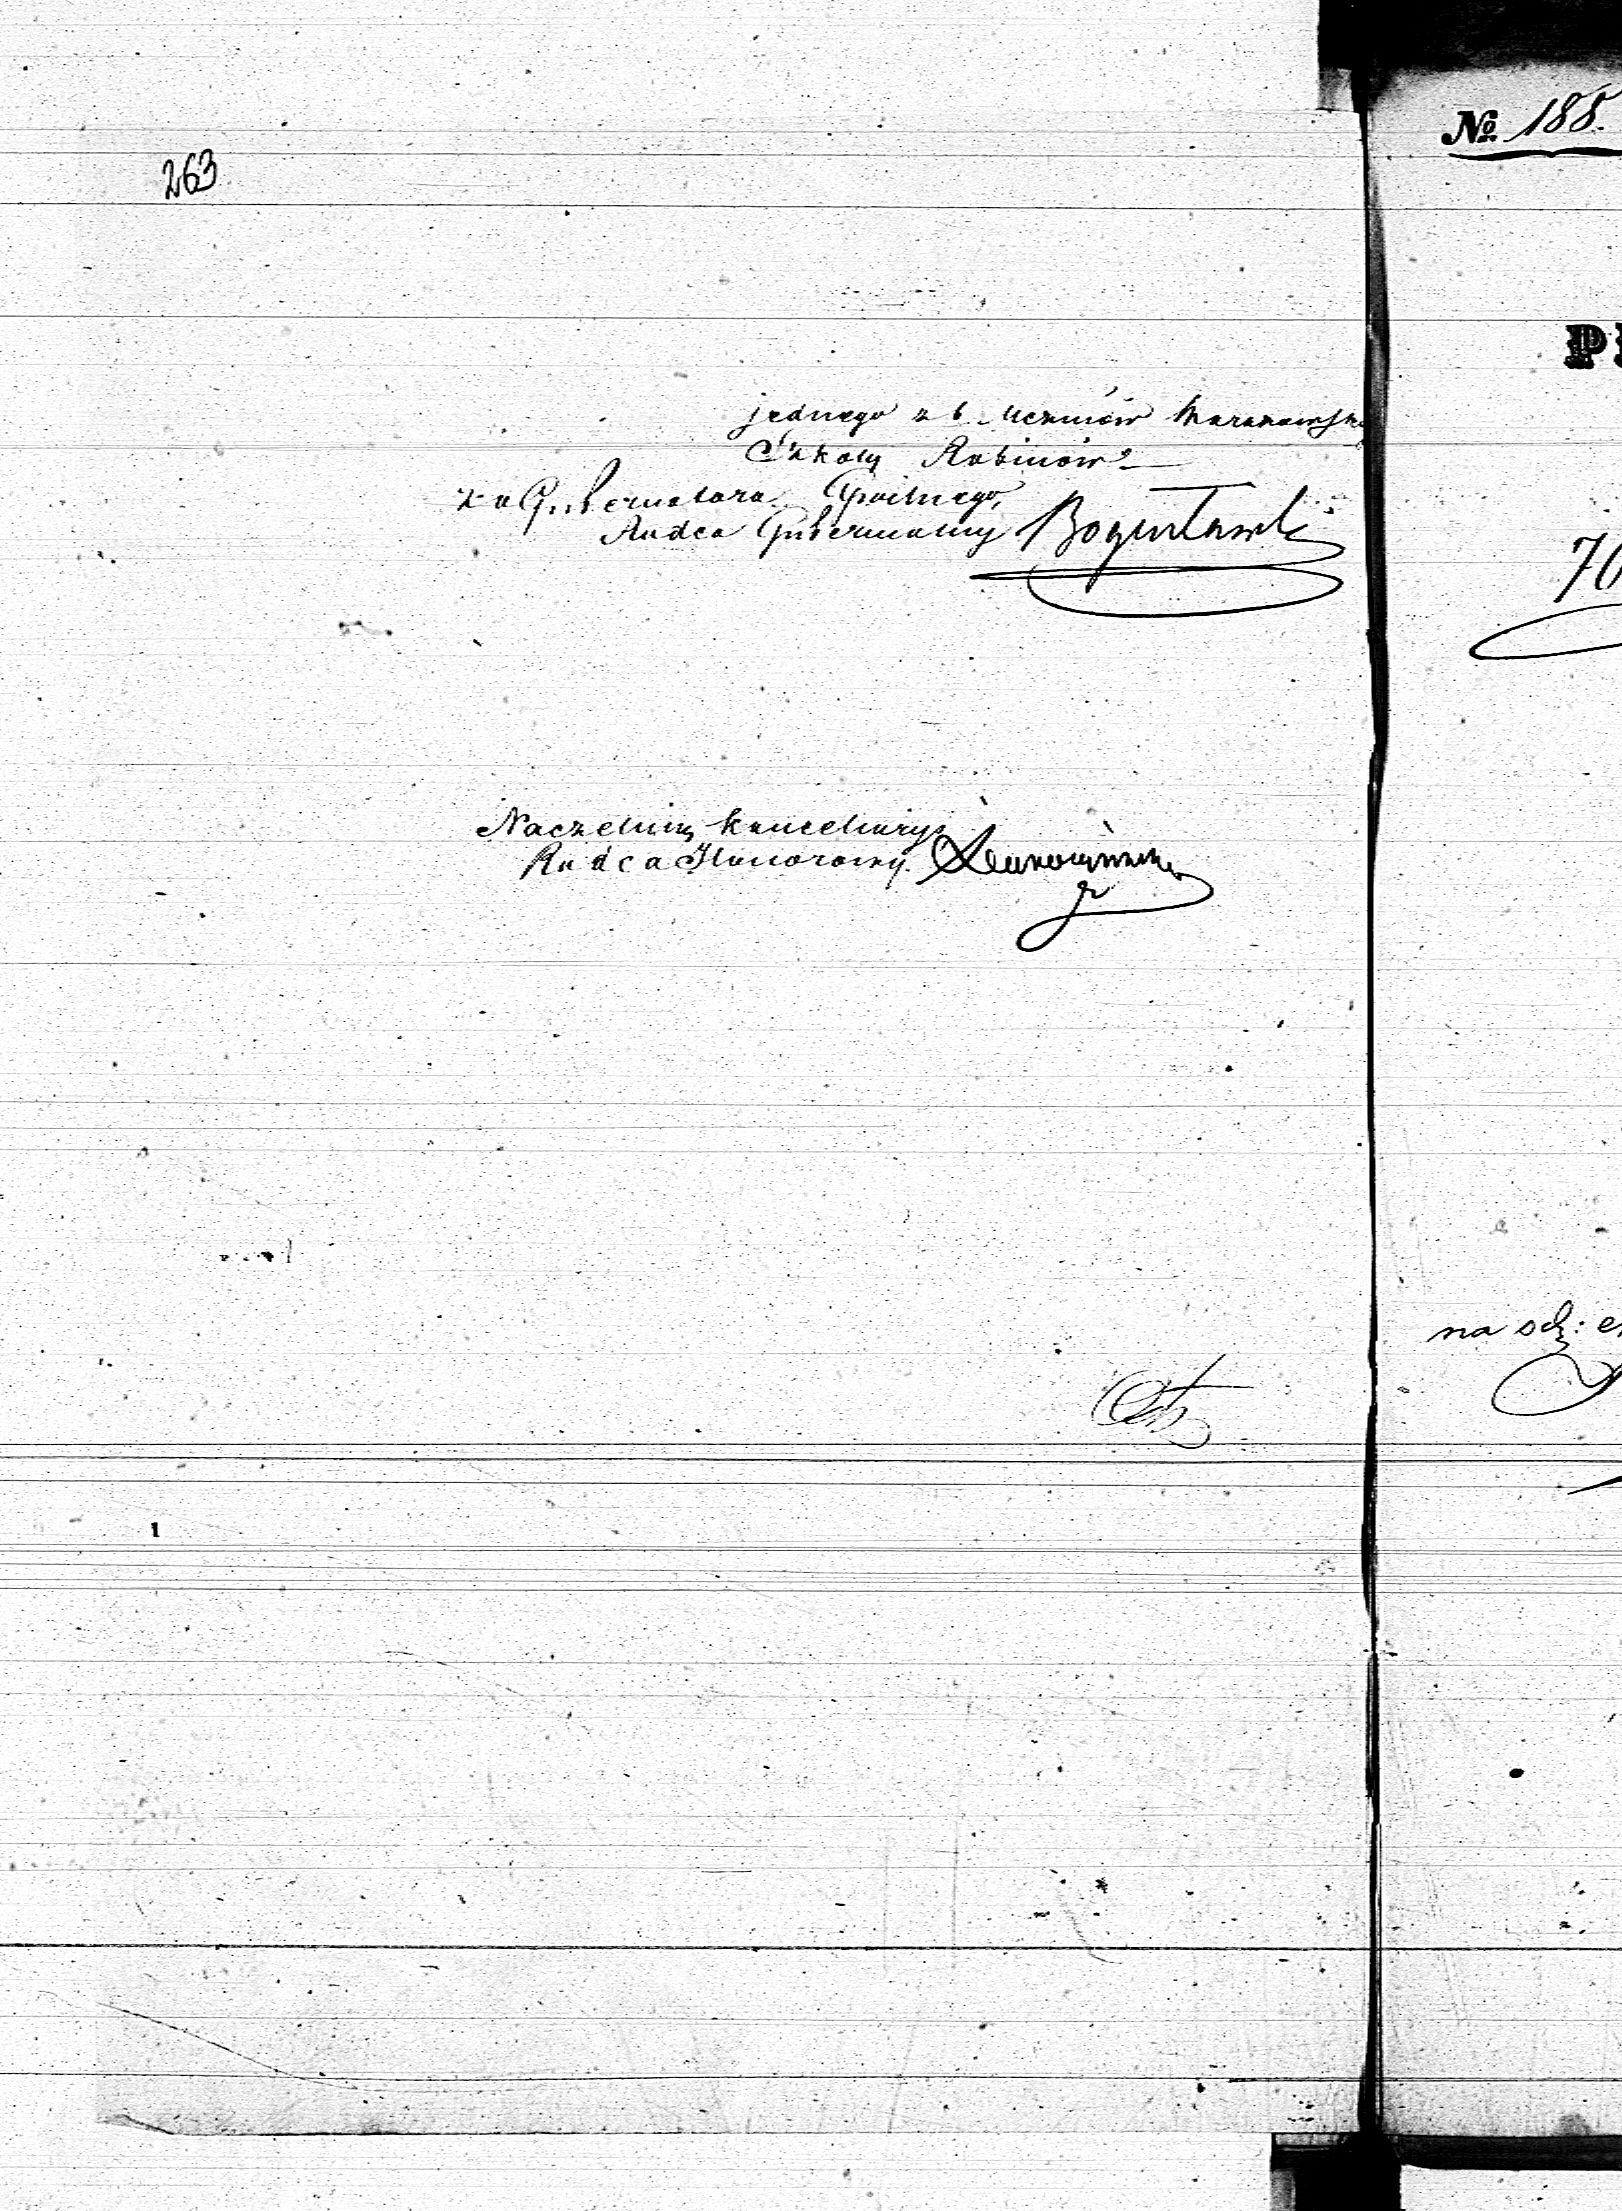 263
jednego z b. Uczniów Warszawskiej
Szkoły Rabinów
za Gubernatora Cywilnego,
Radca Gubernialny Bogusławski
Naczelnik Kancellaryi
Radca Honorowy
1
№ 188.
P
76
na odz: